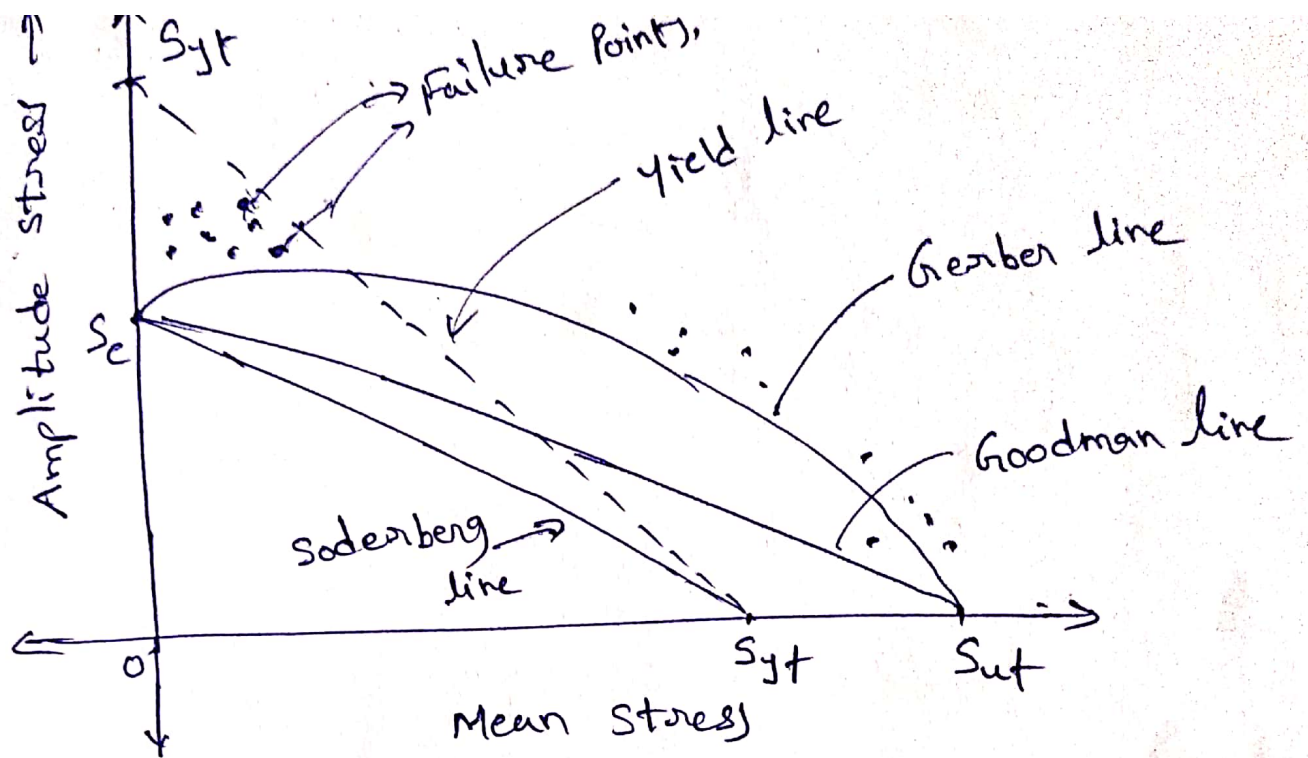 Amplitude stress →
Syt
Failure Points,
Yield line
Gerber line
Se
Goodman line
Soderberg
line
O
Syt
Sut
Mean Stress